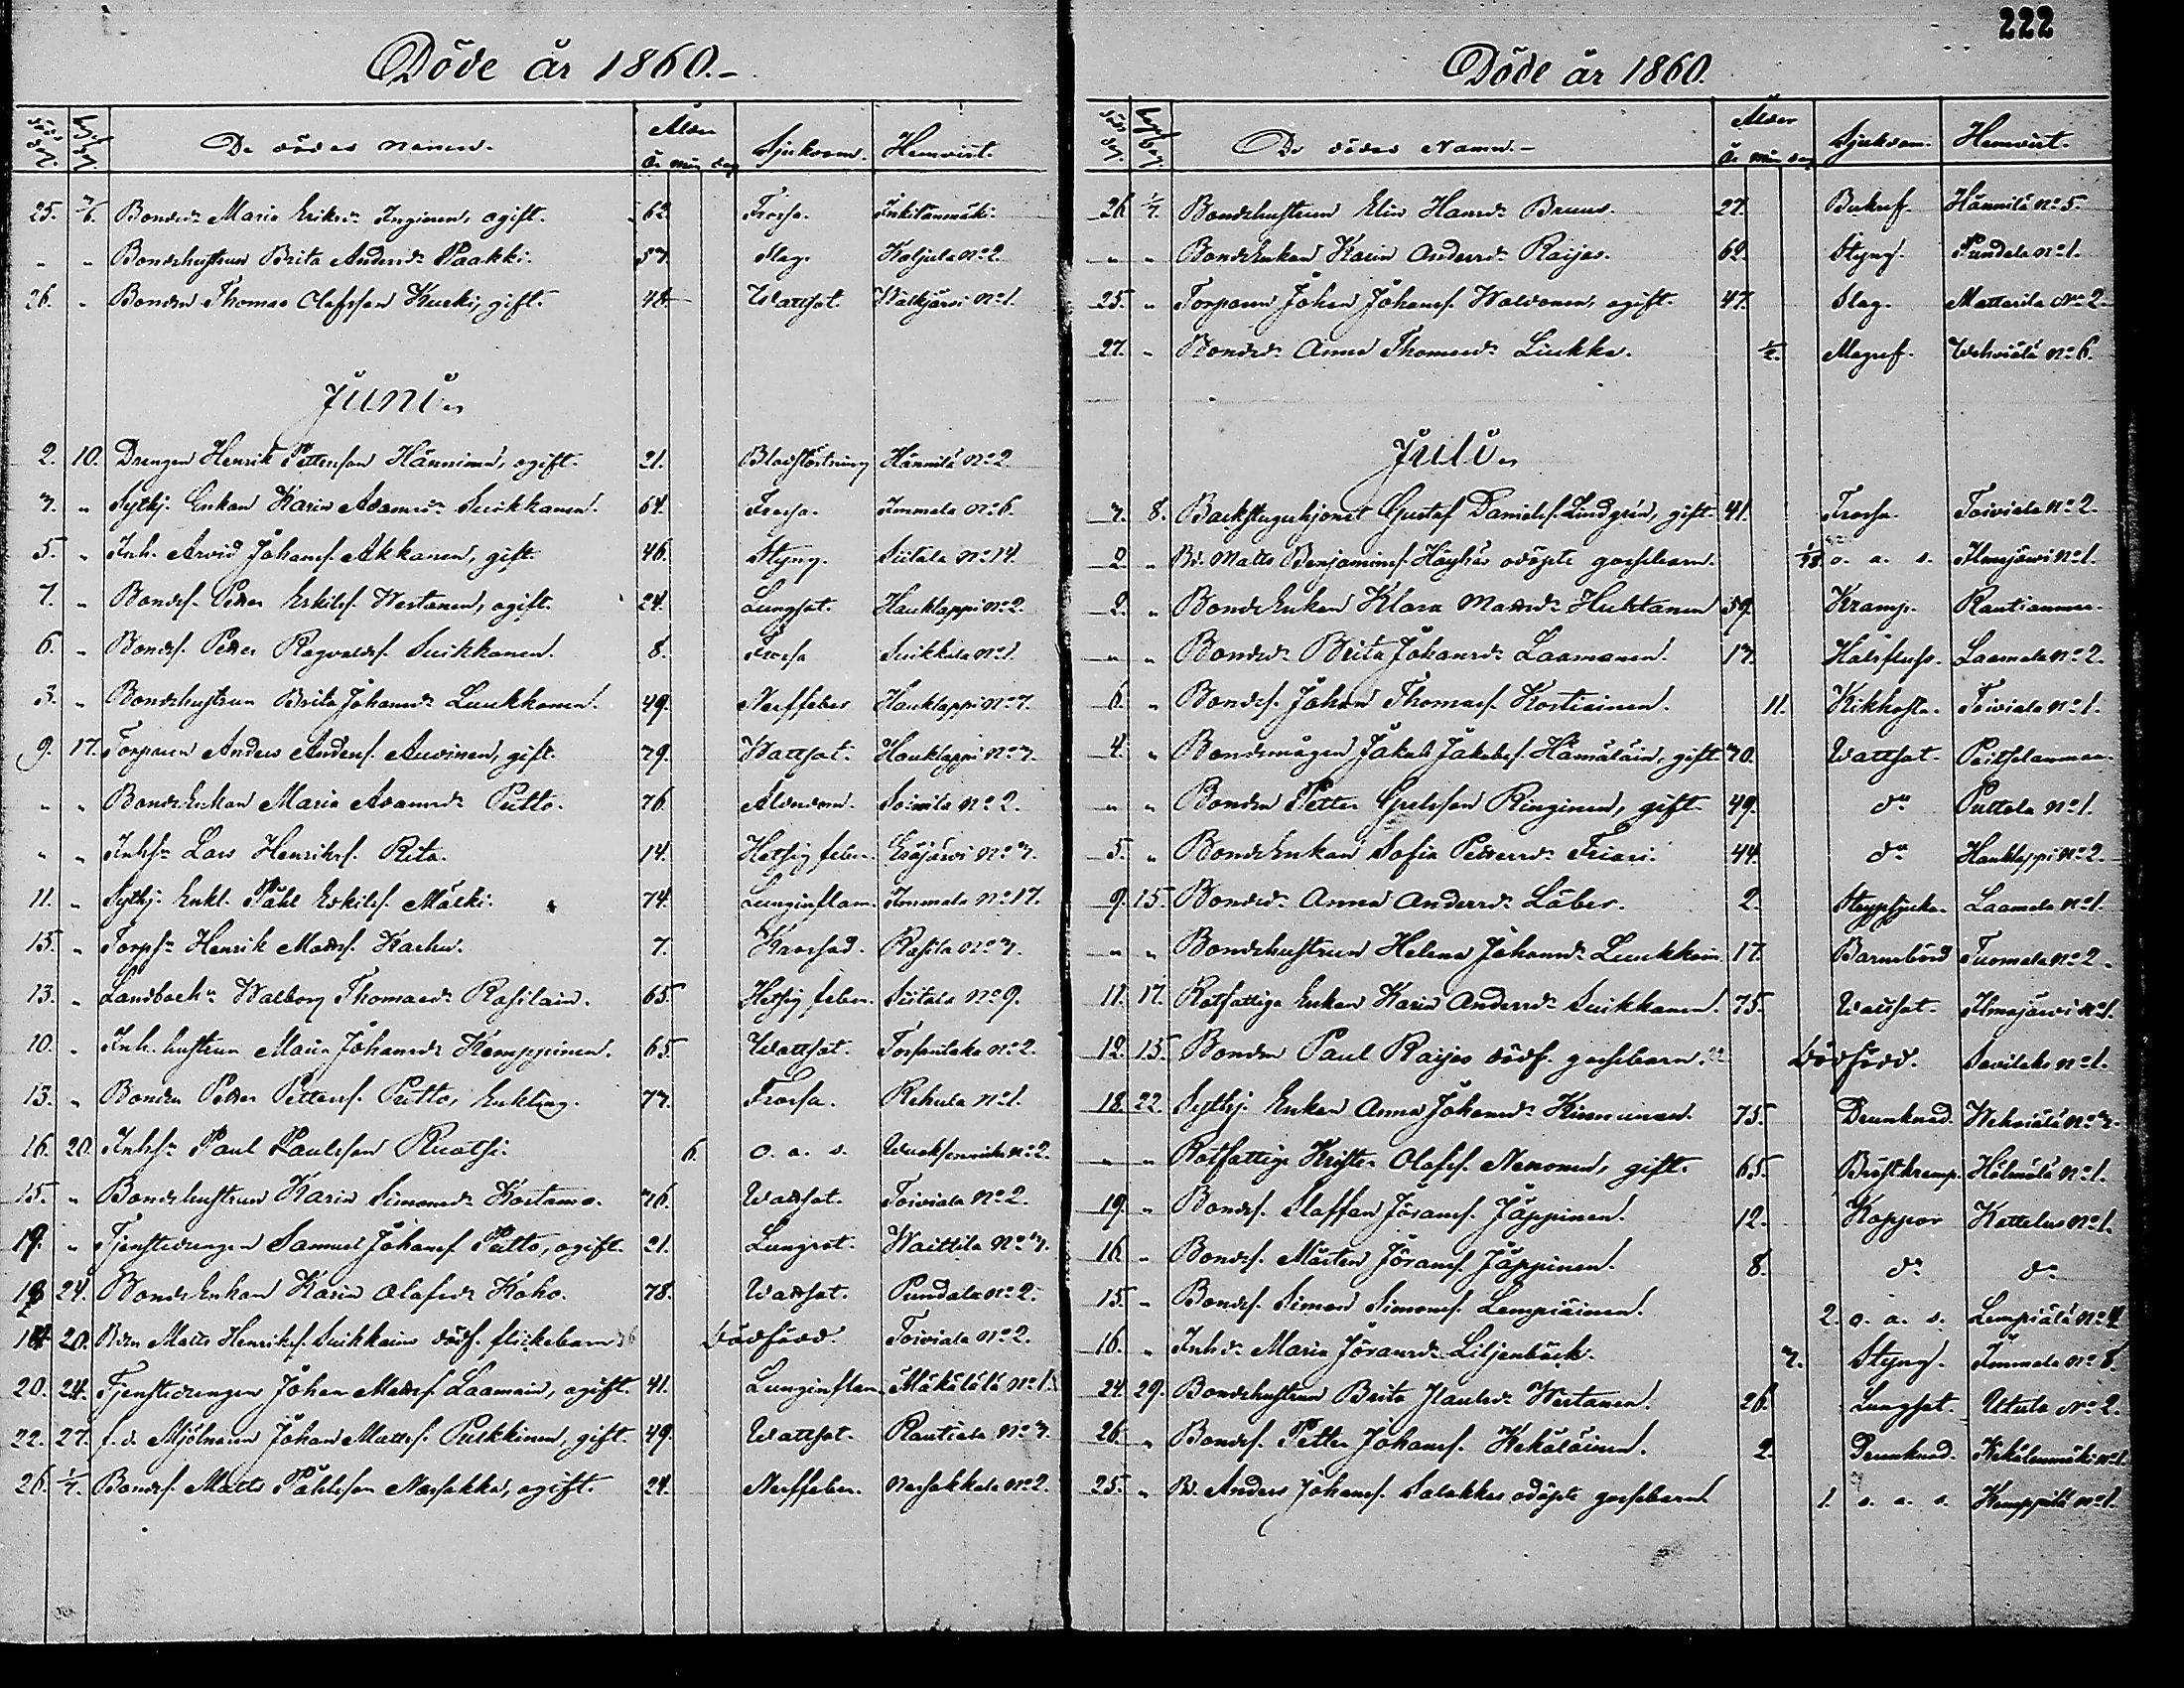 222
Döde år 1860.
döds dag. begr. dag. De dödes namn. Ålder år mån dag Sjukdom. Hemvist.
25. 3/6. Bonded:r Maria Eriksd:r Inginen, ogift. 62. Frossa. Inkilänmäki.
" " Bondehustrun Brita Andersd:r Paakki. 57. Slag. Kaljula No 2.
26. " Bonden Thomas Olofsson Kurki, gift. Wattsot. No 1.
Juni.
2. 10. Drengen Henrik Pettersson Hänninen, ogift. 21. Blodstörtning Hännilä No 2.
3. " Sytnj. Enkan Karin Adamsd:r Suikkanen. 64. Frossa. Immala No 6.
5. " Inh. Arvid Johanss. Akkanen, gift. 46. Styng. Siitala No 14.
7. " Bondes. Petter Eskilss. Westanen, ogift. 24. Lungsot. Hauklappi No 2.
6. " Bondes. Petter Ragvaldss. Suikkanen. 8. Frossa Suikkala No 1.
3. " Bondehustrun Brita Johansd:r Luukkanen. 49. Nerffeber Hauklappi No 7.
9. 17. Torparen Anders Anderss. Auvinen, gift. 79. Wattsot. Hauklappi No 3.
" " BondeEnkan Maria Adamsd:r Putto. 76. Ålderdom. Soinila No 2.
" " Inhs:n Lars Henrikss. Rita. 14. Hetsig feber. Eräjärvi No 3.
11. " Sytnj. Enkl. Påhl Eskilss. Mälki. 74. Lunginflam. Immala No 17.
15. " Torps:n Henrik Matss. Karhu. 7. Rasila No 3.
13. " Walborg Thomasd:r Rasilain. 65. Hetsig feber. Siitala No 9.
10. " Inh. hustrun Maria Johansd:r Kemppinen. 65. Wattsot. No 2.
13. " Bonden Petter Petterss. Putto, Enkling. 77. Frossa. Rehula No 1.
16. 20. Inhs:n Paul Paulsson Ruotsi. 6. o. a. s. Wuoksenniska No 2.
15. " Bondehustrun Karin Simonsd:r Kostamo. 76. Wattsot. Toiviala No 2.
19. " Tjenstedrengen Samuel Johanss. Putto, ogift. 21. Lungsot. Waittila No 3.
24. BondeEnkan Karin Olofsd:r Koho. 78. Wattsot. Pundala No 2.
14 20. Bdn Matts Henrikss. Suikkain dödf. flickebarn Dödfödd. Toiviala No 2.
20. 24. Tjenstedrengen Johan Matss. Laamain, ogift. 41. Lunginflam. Mäkälälä No 1.
22. 27. f.d. Mjölnaren Johan Matss. Pulkkinen, gift. 49. Wattsot. Rautiala No 3.
26. 1/7. Bondes. Matts Påhlsson Narsakka, ogift. 24. Nerffeber. Narsakkala No 2.
Döde år 1860.
döds dag. begr. dag. De dödes Namn. Ålder år mån dag Sjukdom. Hemvist.
26. 1/7. Bondehustrun Elin Hansd:r Bruus. 27. Bukref. Hännilä No 5.
" " BondeEnkan Karin Andersd:r Raijas. 62. Styng. Pundala No 1.
25. " Torparen Johan Johanss. Waldonen, ogift. 47. Slag. Mattarila No 2.
27. " Bonded:r Anna Thomasd:r Liukka. 1/2. Magref. Wehviälä No 6.
Juli.
3. 8. Backstuguhjonet Gustaf Danielss. Lindgrén, gift. 41. Frossa. Toiviala No 2.
2. " Bd. Matts Benjaminss. odöpte gossebarn. o. a. s. Ilmajärvi No 1.
2. " BondeEnkan Klara Matsd:r Huhtanen 59. Kramp. Rautianmaa.
" " Bonded:r Brita Johansd:r Laamanen. 13. Halsfluss. Laamala No 2.
6. " Bondes. Johan Thomass. Kostiainen. 11. Kikhosta. Toiviala No 1.
4. " Bondemågen Jakob Jakobss. Hämäläin, gift. 70. Wattsot. Peltolanmaa.
" " Bonden Petter Grelsson Ringinen, gift. 49. d:o Puttola No 1.
5. " BondeEnkan Sofia Pettersd:r Friari. 44. d:o Hauklappi No 2.
9. 15. Bonded:r Anna Andersd:r Löber. 2. Laamala No 1.
" " Bondehustrun Helena Johansd:r Luukkain 17. Barnsbörd Tuomala No 2.
11. 17. Rotfattiga Enkan Karin Andersd:r Suikkanen. 75. Wattsot. Ilmajärvi No 1.
12. 15. Bonden Paul Raijas dödf. gossebarn. Dödfödd. Savilaks No 1.
18. 22. Sytnj. Enkan Anna Johansd:r Kinnunen. 75. Drunknad. Wehviälä No 3.
" " Rotfattige Krister Olofss. Nenonen, gift. 65. Bröstkramp. Hölmälä No 1.
19. " Bondes. Staffan Jöranss. Jäppinen. 12. Koppor Kattelus No 1.
16. " Bondes. Mårten Jöranss. Jäppinen. 8. d:o d:o
15. " Bondes. Simon Simonss. Lempiäinen. 2. o. a. s. Lempiälä No 4
16. " Inhd:r Maria Jöransd:r Liljenbäck. 3. Styng. Immala No 8.
24. 29. Bondehustrun Brita Paulsd:r Westanen. 26. Lungsot. Utula No 2.
26. " Bondes. Petter Johanss. Kekäläinen. 2. Drunknad. Kekälänmäki No 1.
25. " Bd. Anders Johanss. Salakka odöpte gossebarn. 1. o. a. s. Kemppilä No 1.